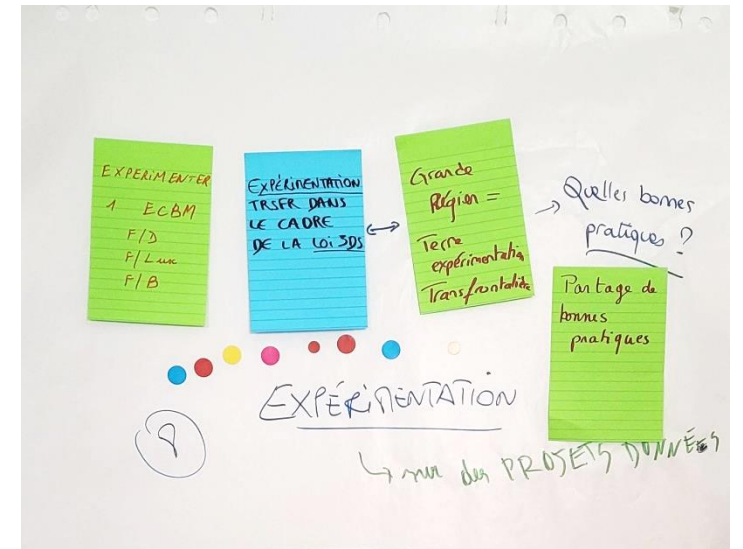 EXPERIMENTER
1 ECBM
F/D
F/Lux
F/B
EXPÉRIMENTATION
TRSFR DANS
LE CADRE
DE LA LOI 3DS
Grande
Région =
Terre
expérimentation
Transfrontalière
Quelles bonnes
pratiques ?
Partage de
bonnes
pratiques
EXPÉRIMENTATION
8
↳ sur des PROJETS DONNÉES